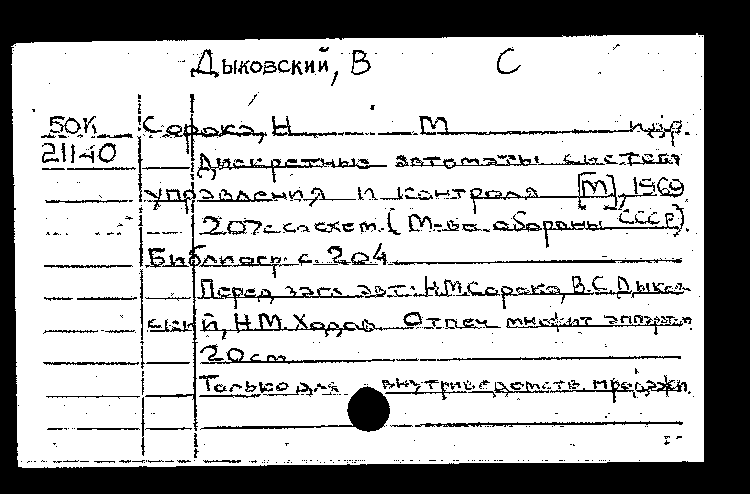 Дыковский, В С
50К Сорока, Н М и др.
21140 Дискретные автоматы систем
управления и контроля [М], 1969
207с. с схем. (М-во обороны СССР).
Библиогр. с. 204
Перед загл. авт.: Н.М.Сорока, В.С.Дыков-
ский, Н.М. Ходов. Отпеч множит аппарат
20 см
Только для внутриведомств. продажи